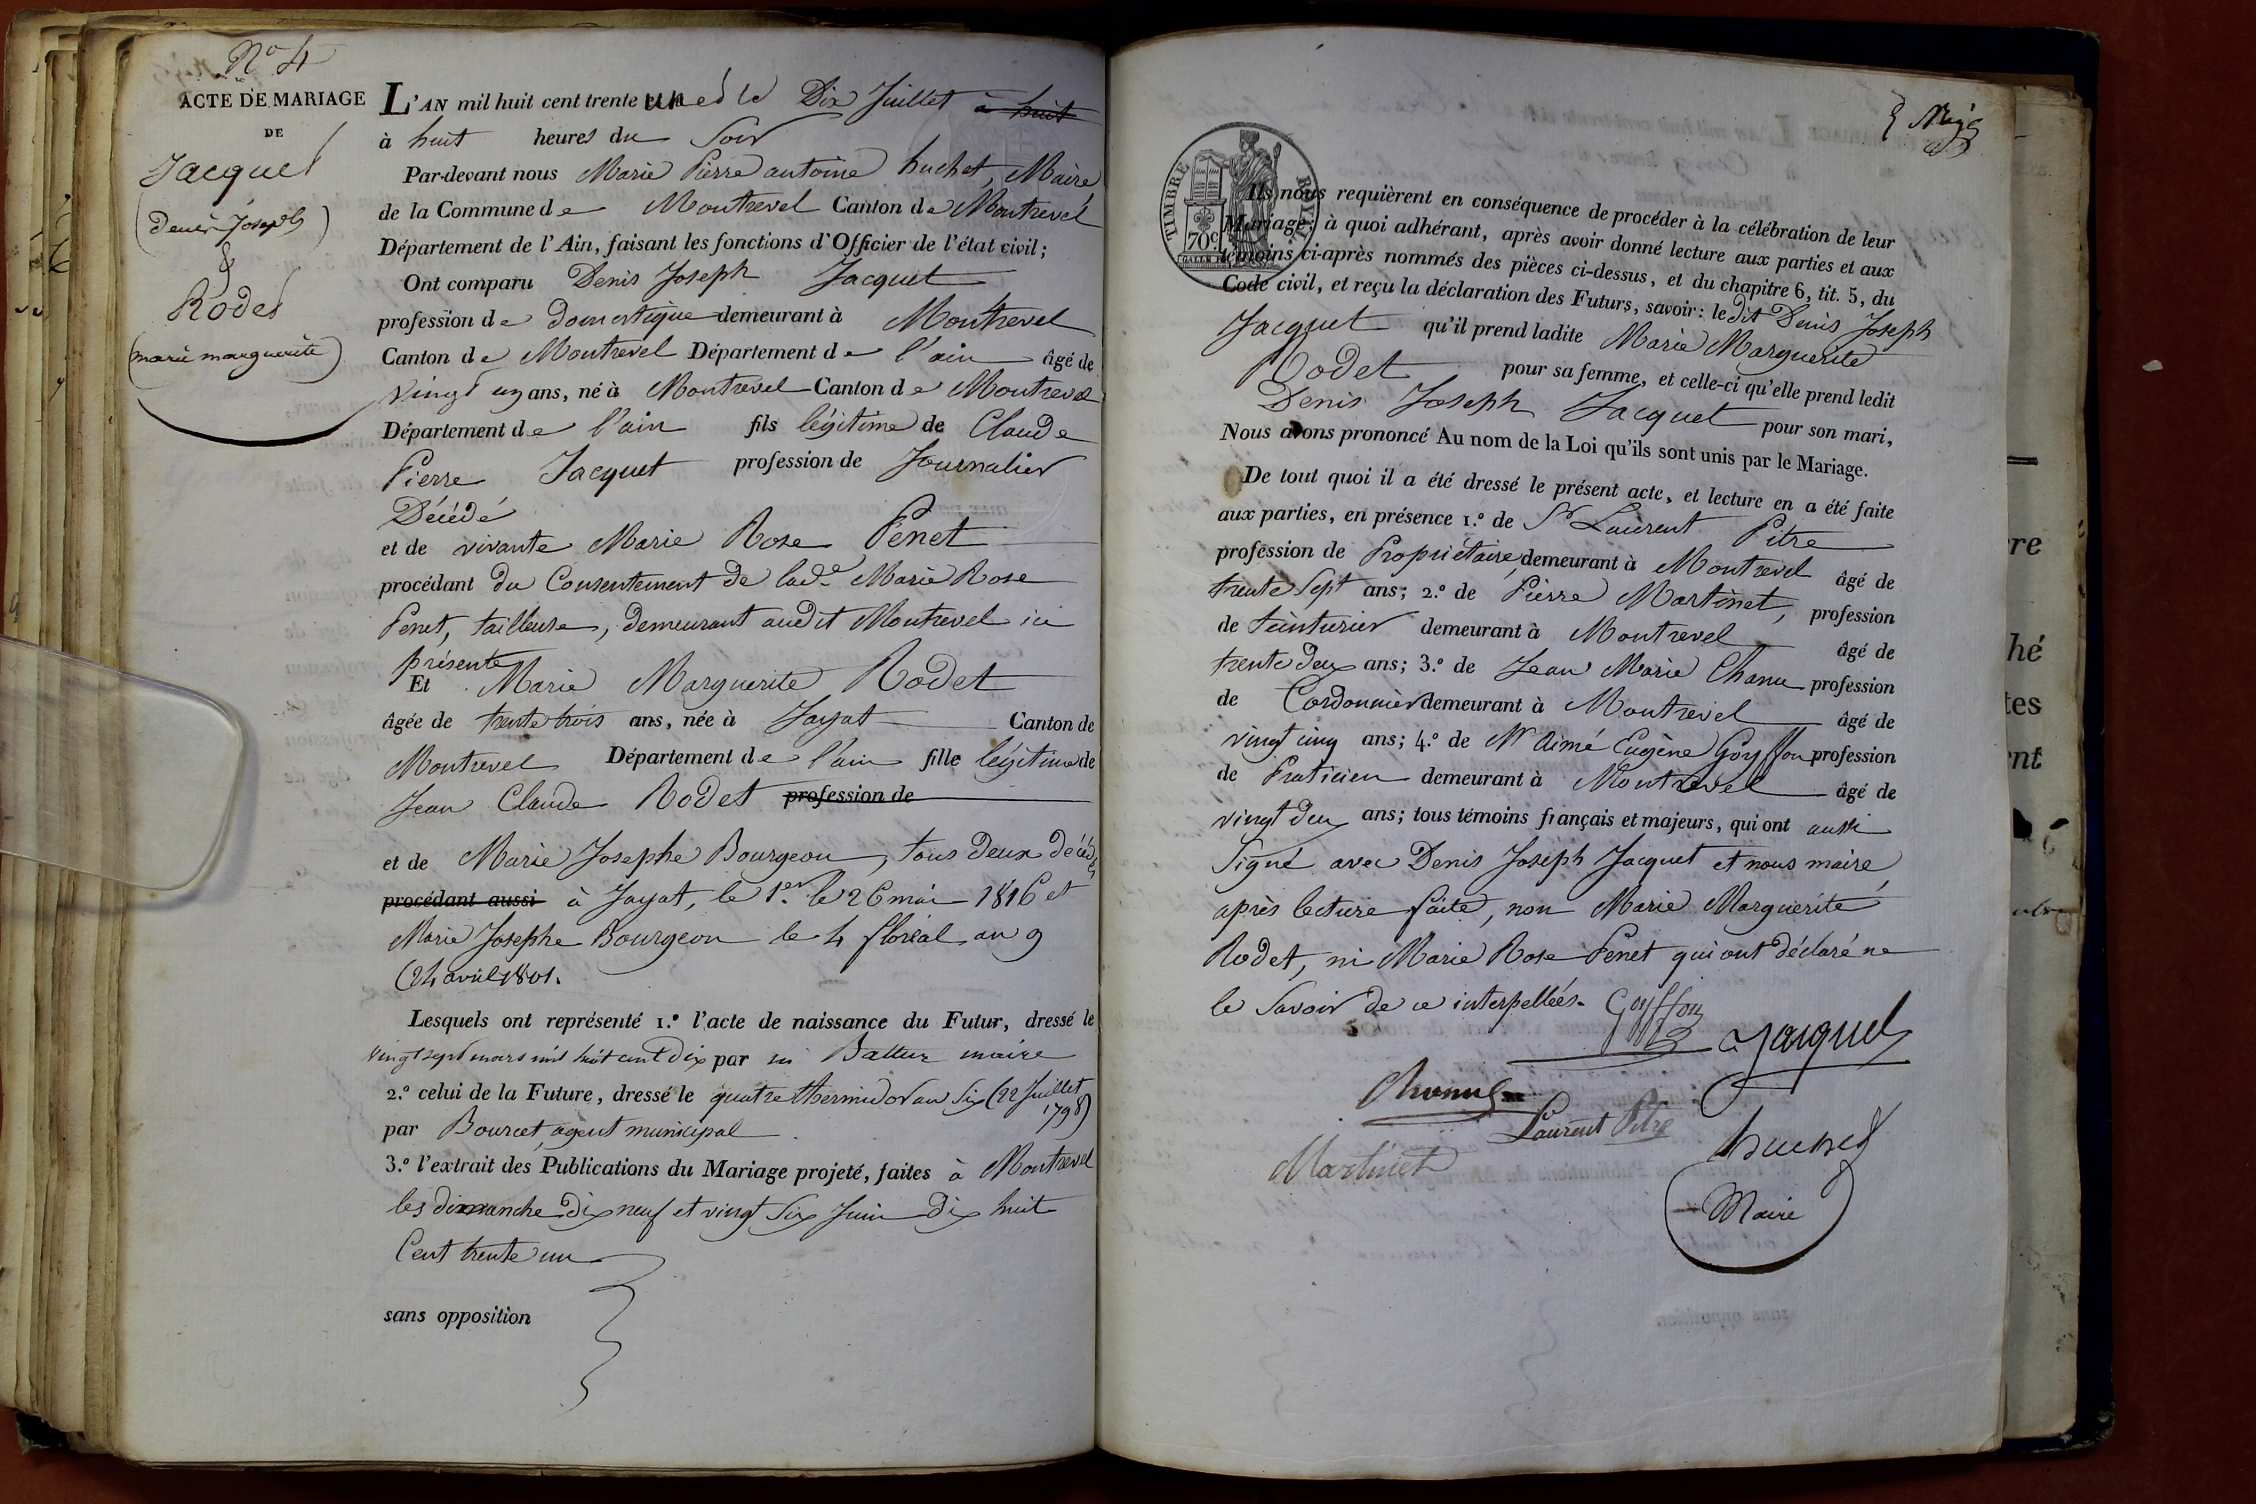 N° 4
ACTE DE MARIAGE
DE
Jacquet
(Denis Joseph)
&
Rodet
(marie marguerite)
L'AN mil huit cent trente un et le Dix Juillet à huit
à huit heures du Soir
Par-devant nous Marie Pierre antoine huchet, Maire
de la Commune de Montrevel Canton de Montrevel
Département de l'Ain, faisant les fonctions d'Officier de l'état civil;
Ont comparu Denis Joseph Jacquet
profession de domestique demeurant à Montrevel
Canton de Montrevel Département de l'ain âgé de
vingt un ans, né à Montrevel Canton de Montrevel
Département de l'ain fils légitime de Claude
Pierre Jacquet profession de Journalier
Décédé
et de vivante Marie Rose Penet
procédant du Consentement de lade Marie Rose
Penet, tailleuse, demeurant audit Montrevel ici
présente
Et Marie Marguerite Rodet
âgée de trente trois ans, née à Jayat Canton de
Montrevel Département de l'ain fille légitime de
Jean Claude Rodet profession de
et de Marie Josephe Bourgeon, tous deux décédés
procédant aussi à Jayat, le 1er le 26 mai 1816 et
Marie Josephe Bourgeon le 4 floréal an 9
(24 avril 1801.
Lesquels ont représenté 1.° l'acte de naissance du Futur, dressé le
vingt sept mars mil huit cent dix par Battur maire
2.° celui de la Future, dressé le quatre thermidor an Six (22 Juillet
1798)
par Bourcet, agent municipal
3.° l'extrait des Publications du Mariage projeté, faites à Montrevel
les dimanche dix neuf et vingt Six Juin dix huit
Cent trente un
sans opposition
TIMBRE ROYAL
70c
Ils nous requièrent en conséquence de procéder à la célébration de leur
Mariage; à quoi adhérant, après avoir donné lecture aux parties et aux
témoins ci-après nommés des pièces ci-dessus, et du chapitre 6, tit. 5, du
Code civil, et reçu la déclaration des Futurs, savoir: le dit Denis Joseph
Jacquet qu'il prend ladite Marie Marguerite
Rodet pour sa femme, et celle-ci qu'elle prend ledit
Denis Joseph Jacquet pour son mari,
Nous avons prononcé Au nom de la Loi qu'ils sont unis par le Mariage.
De tout quoi il a été dressé le présent acte, et lecture en a été faite
aux parties, en présence 1.° de Sr Laurent Pitre
profession de Propriétaire, demeurant à Montrevel âgé de
trente Sept ans; 2.° de Pierre Martinet, profession
de teinturier demeurant à Montrevel âgé de
trente deux ans; 3.° de Jean Marie Chanu profession
de Cordonnier demeurant à Montrevel âgé de
vingt cinq ans; 4.° de Mr Aimé Eugène Goyffon profession
de Praticien demeurant à Montrevel âgé de
vingt deux ans; tous témoins français et majeurs, qui ont aussi
Signé avec Denis Joseph Jacquet et nous maire
après lecture faite, non Marie Marguerite
Rodet, ni Marie Rose Penet qui ont déclaré ne
le Savoir de ce interpellées.
Goyffon
Jacquet
Chanu
Laurent Pitre
huchet
Martinet
Maire